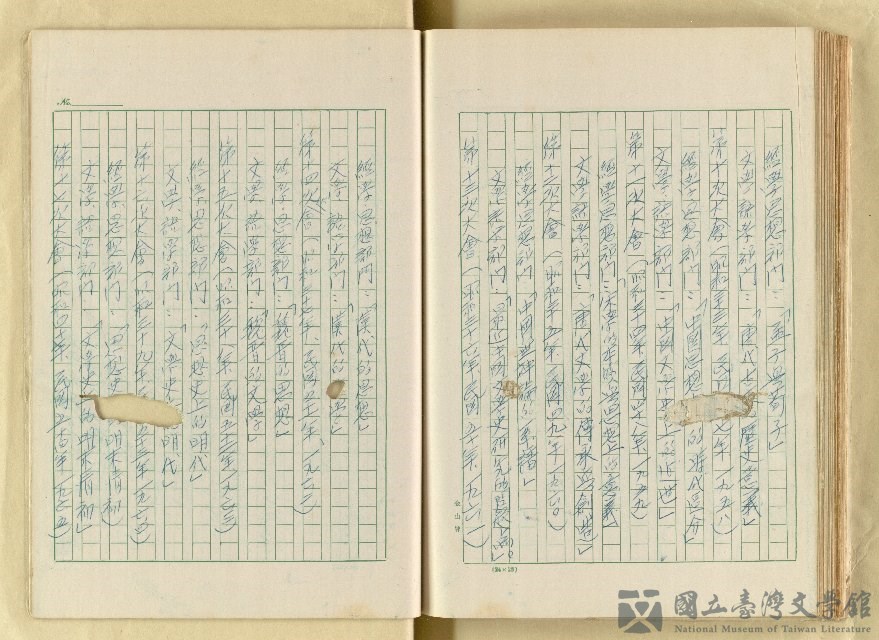 經學思想部門:「孟子與荀子」
文學語學部門:「唐代 歷史意義」
第十次大會(昭和三三年、民國四七年、一九五八)
經學思想部門:「中國思想 的時代區分」
文學語學部門:「中國文學 的近世」
第十一次大會(昭和三四年、民國四八年、一九五九)
經學思想部門:
文學語學部門:「唐代文學的傳承與創造」
第十二次大會(昭和三五年、民國四九年、一九六〇)
經學思想部門:「中國 系譜」
文學語學部門:
第十三次大會(昭和三六年、民國五十年、一九六一)
金山號
(24×25)
No.
經學思想部門:「漢代的思想」
文學語學部門:「漢代的 」
第十四次大會(昭和三七年、民國五一年、一九六二)
經學思想部門:「魏晉的思想」
文學語學部門:「魏晉的文學」
第十五次大會(昭和三八年、民國五二年、一九六三)
經學思想部門:「思想史上的明代」
文學語學部門:「文學史 明代」
第十六次大會(昭和三九年、 五三年、一九六四)
經學思想部門:「思想史 明末清初」
文學語學部門:「文學史 的明末清初」
第十七次大會(昭和四十年、民國五四年、一九六五)
國立臺灣文學館
National Museum of Taiwan Literature